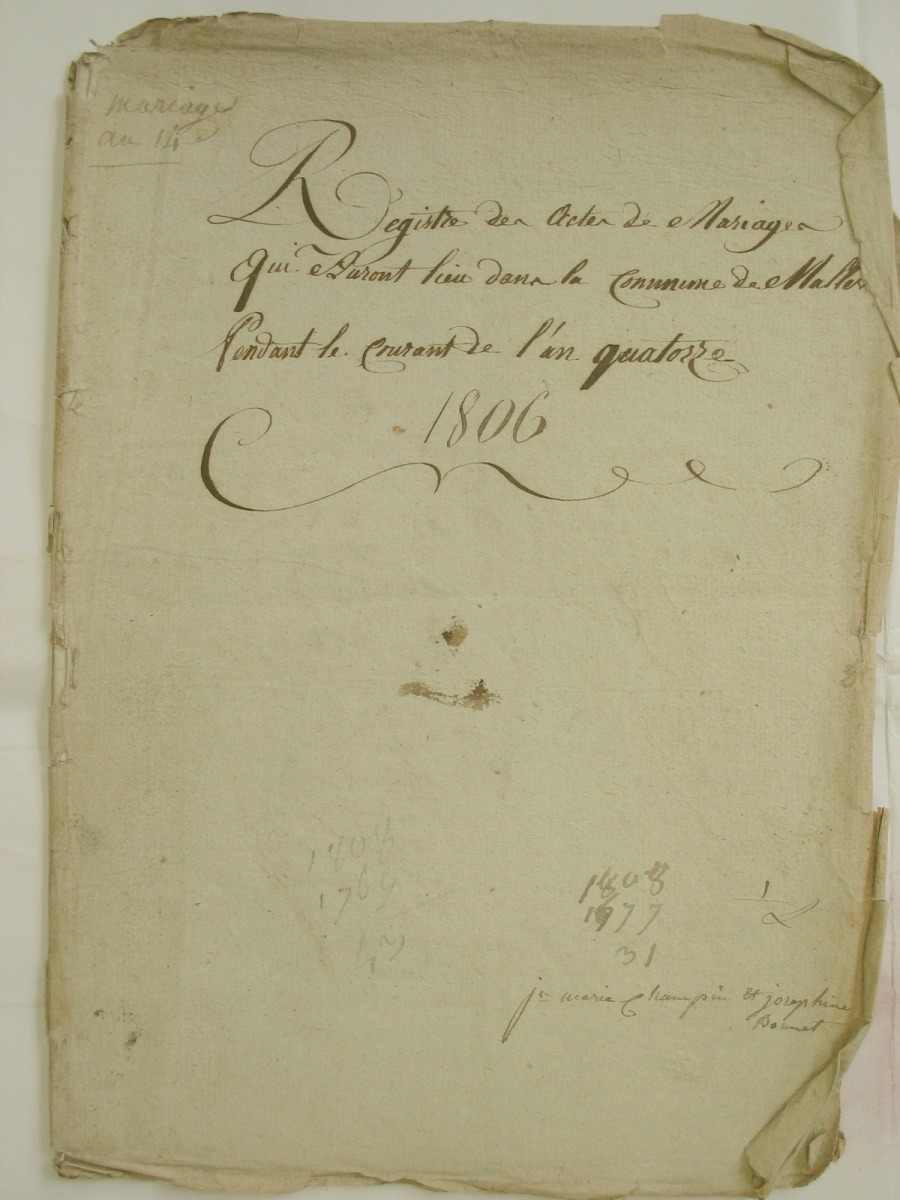 mariage
an 14
Registre des Actes de Mariages
Qui Auront lieu dans la Commune de
Pendant le Courant de l'an quatorze
1806
1808
1765
43
1808
1777
31
1
2
jn marie Champin et josephine
Bonnet